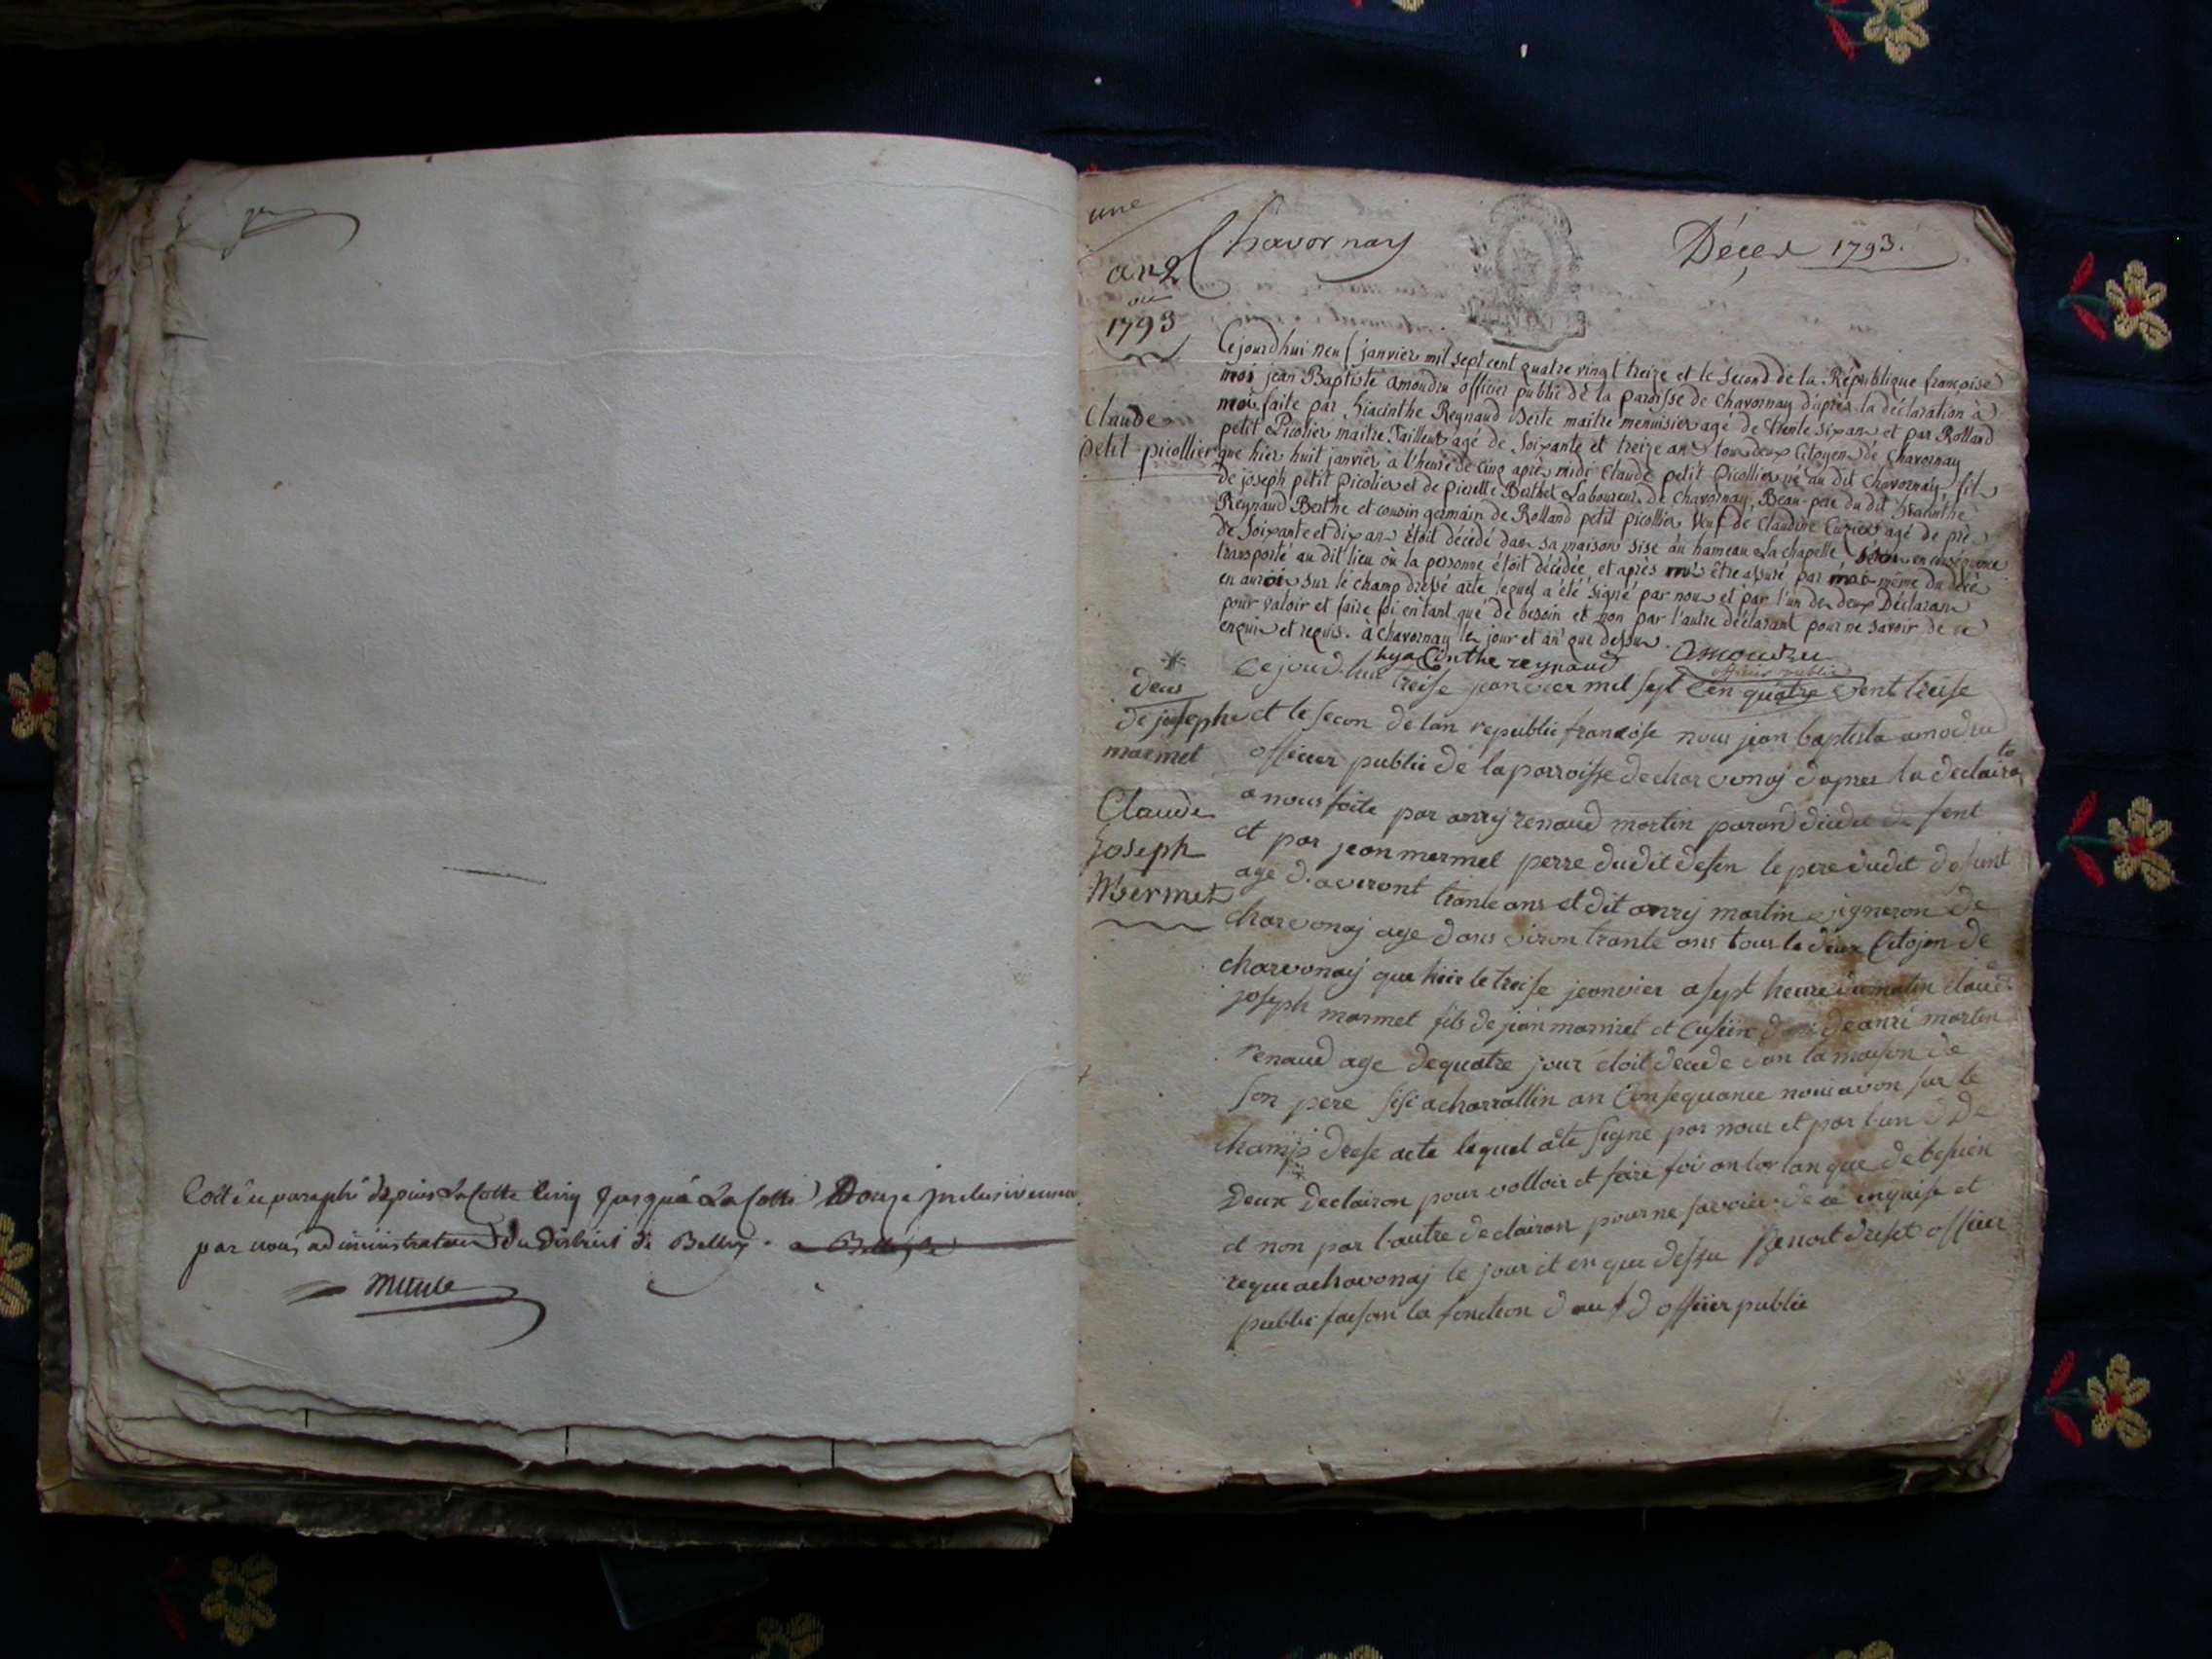 Cotté et paraphé depuis La Cotte cinq jusqu'à La Cotte Douze inclusivement
par nous administrateur du district de Belley.
une
Chavornay
Décès 1793.
an 2
ou
1793
Claude
petit picollier
Cejourd'hui neuf janvier mil sept cent quatre vingt treize et le second de la République françoise
moi jean Baptiste amoudru officier public de la paroisse de Chavornay d'après la déclaration à
moi faite par hiacinthe Reynaud Berte maitre menuisier agé de trente six ans et par Rolland
petit Picolier maitre Tailleur agé de Soixante et treize ans tous deux Citoyens de Chavornay
que hier huit janvier à l'heure de cinq après midi Claude petit Picollier né au dit Chavornay, fils
de joseph petit picolier et de pierette Berthet Laboureur de Chavornay, Beau-pere du dit hiacinthe
Reynaud Berthe et cousin germain de Rolland petit picollier Veuf de Claudine agé de près
de Soixante et dix ans étoit décédé dans sa maison sise au hameau La chapelle en conséquence
transporté au dit lieu où la personne étoit décédée et après m'être assuré par moi-même du décès
en aurois sur le champ dressé acte lequel a été signé par nous et par l'un des deux Déclarans
pour valoir et faire foi en tant que de besoin et non par l'autre déclarant pour ne savoir de ce
enquis et requis. à Chavornay les jour et an que dessus.
hyacinthe reynaud amoudru
officier public
deus
de josephe
marmet
Claude
Joseph
Mermet
Cejourd.hui treise janvier mil sept cen quatre vent treise
et le secon de lan republic francoise nous jean baptista amodru
officier public de la parroisse de charvonaj dapres la declairatio
a nous faite par anrij renaud martin parand dudit de funt
et par jean mermel perre dudit defun le pere dudit defunt
age d.averont trante ans et dit anrij martin vigneron de
charvonaj age dans viron trante ans tous le deux Citojen de
charvonaij que hier le treise jeanvier a sept heure du matin claude
joseph marmet fils de jean marmet et cusiin de anri martin
renaud age de quatre jour etoit decede dan la maison de
son pere sise a charrallin an Consequance nous avon sur le
champ drese acte lequel a ete signe par nous et par l.un d de
Deux declairan pour valloir et faire foi an tan que de besuin
et non par l.autre declairan pour ne savoir de ce enquise et
reque a chavonaj le jour et en que dessu Benoit dreset officier
public faisan la fonction d au t d officier public